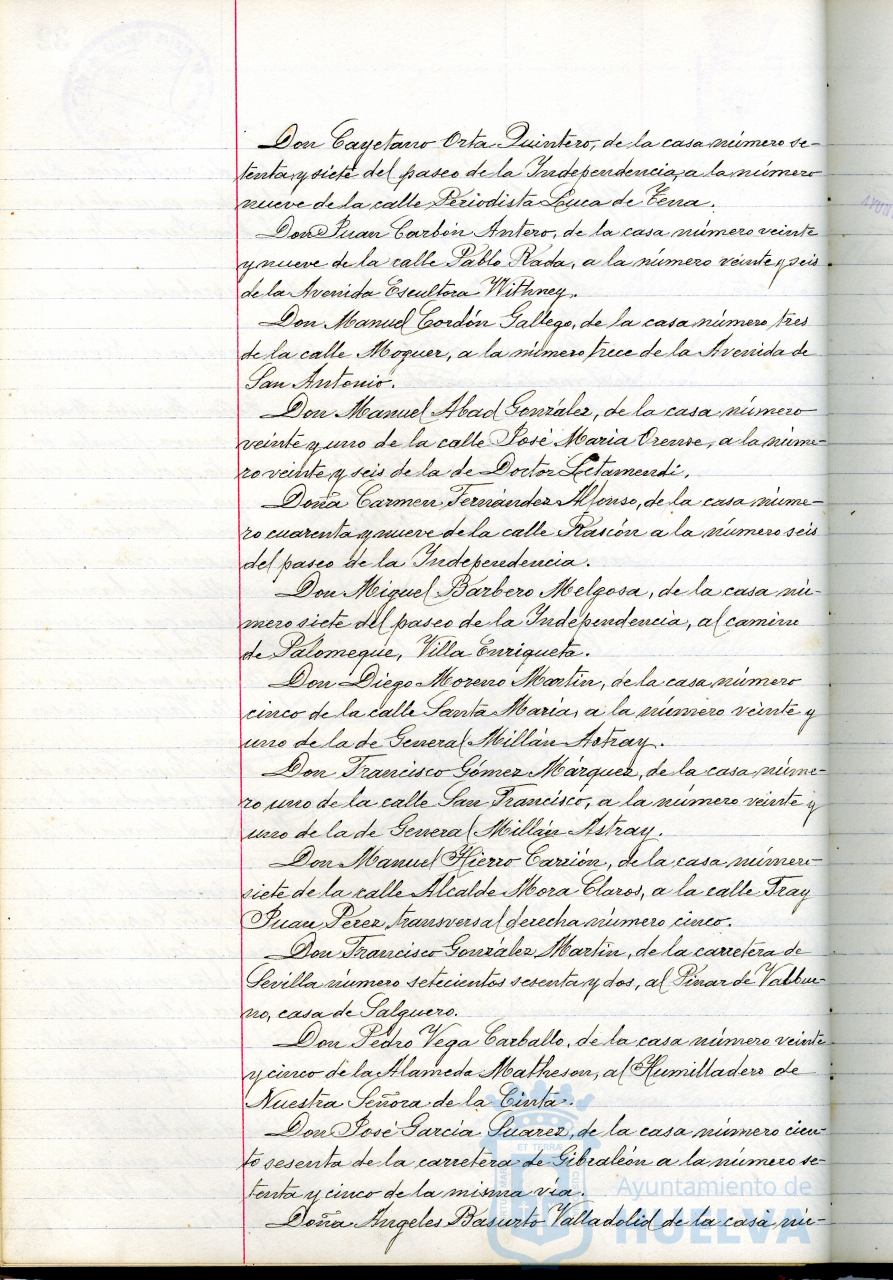 Don Cayetano Orta Quintero, de la casa número se-
tenta y siete del paseo de la Independencia, a la número
nueve de la calle Periodista Luca de Tena.
Don Juan Carbón Antero, de la casa número veinte
y nueve de la calle Pablo Rada, a la número veinte y seis
de la Avenida Escultora Withney.
Don Manuel Cordón Gallego, de la casa número tres
de la calle Moguer, a la número trece de la Avenida de
San Antonio.
Don Manuel Abad González, de la casa número
veinte y uno de la calle José Maria Orense, a la núme-
ro veinte y seis de la de Doctor Letamendi.
Doña Carmen Fernández Alfonso, de la casa núme-
ro cuarenta y nueve de la calle Rascón a la número seis
del paseo de la Independencia.
Don Miguel Barbero Melgosa, de la casa nú-
mero siete del paseo de la Independencia, al camino
de Palomeque, Villa Enriqueta.
Don Diego Moreno Martin, de la casa número
cinco de la calle Santa María, a la número veinte y
uno de la de General Millán Astray.
Don Francisco Gómez Márquez, de la casa núme-
ro uno de la calle San Francisco, a la número veinte y
uno de la de General Millán Astray.
Don Manuel Hierro Carrión, de la casa número
siete de la calle Alcalde Mora Claros, a la calle Fray
Juan Pérez transversal derecha número cinco.
Don Francisco González Martin, de la carretera de
Sevilla número setecientos sesenta y dos, al Pinar de Valbue-
no, casa de Salguero.
Don Pedro Vega Carballo, de la casa número veinte
y cinco de la Alameda Matheson, al Humilladero de
Nuestra Señora de la Cinta.
Don José García Suarez, de la casa número cien-
to sesenta de la carretera de Gibraleón a la número se-
tenta y cinco de la misma vía.
Doña Angeles Basurto Valladolid de la casa nú-
Ayuntamiento de
HUELVA